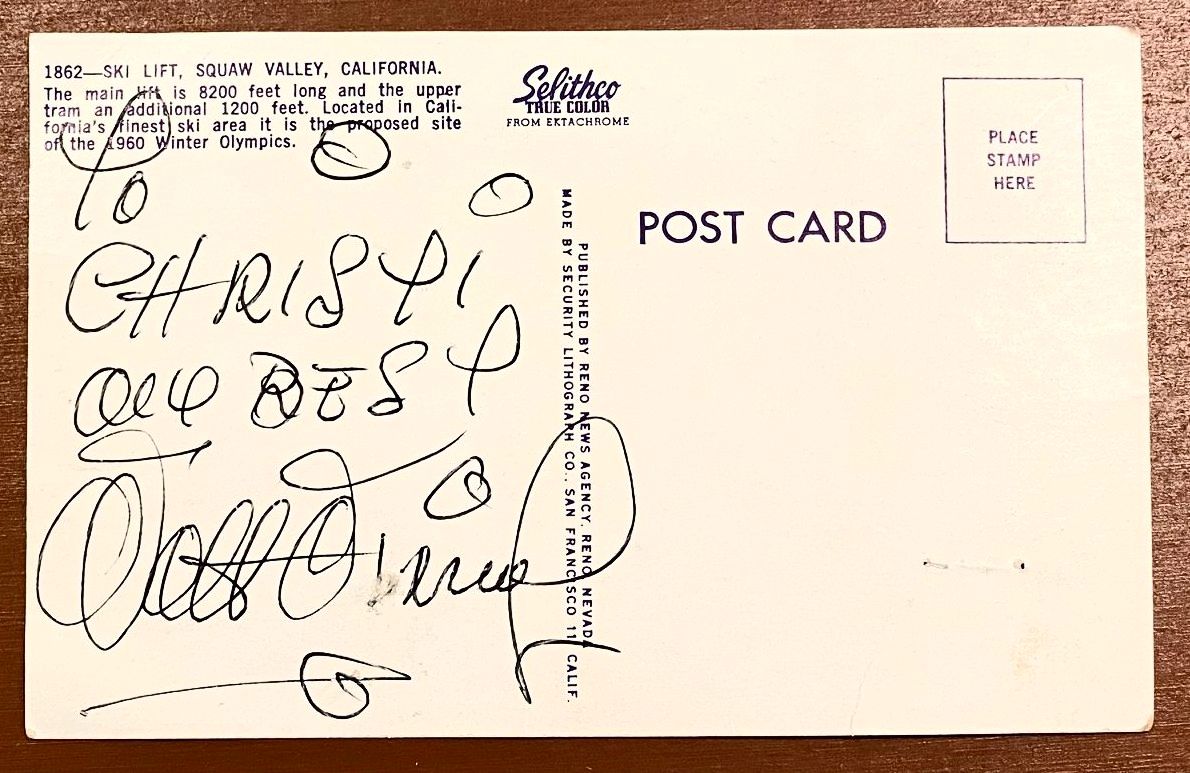 1862—SKI LIFT, SQUAW VALLEY, CALIFORNIA.
The main lift is 8200 feet long and the upper
tram an additional 1200 feet. Located in Cali-
fornia's finest ski area it is the proposed site
of the 1960 Winter Olympics.
Selithco
TRUE COLOR
FROM EKTACHROME
PLACE
STAMP
HERE
POST CARD
TO
CHRISTI
OUR BEST
Walt Disney
PUBLISHED BY RENO NEWS AGENCY, RENO, NEVADA
MADE BY SECURITY LITHOGRAPH CO., SAN FRANCISCO 11, CALIF.